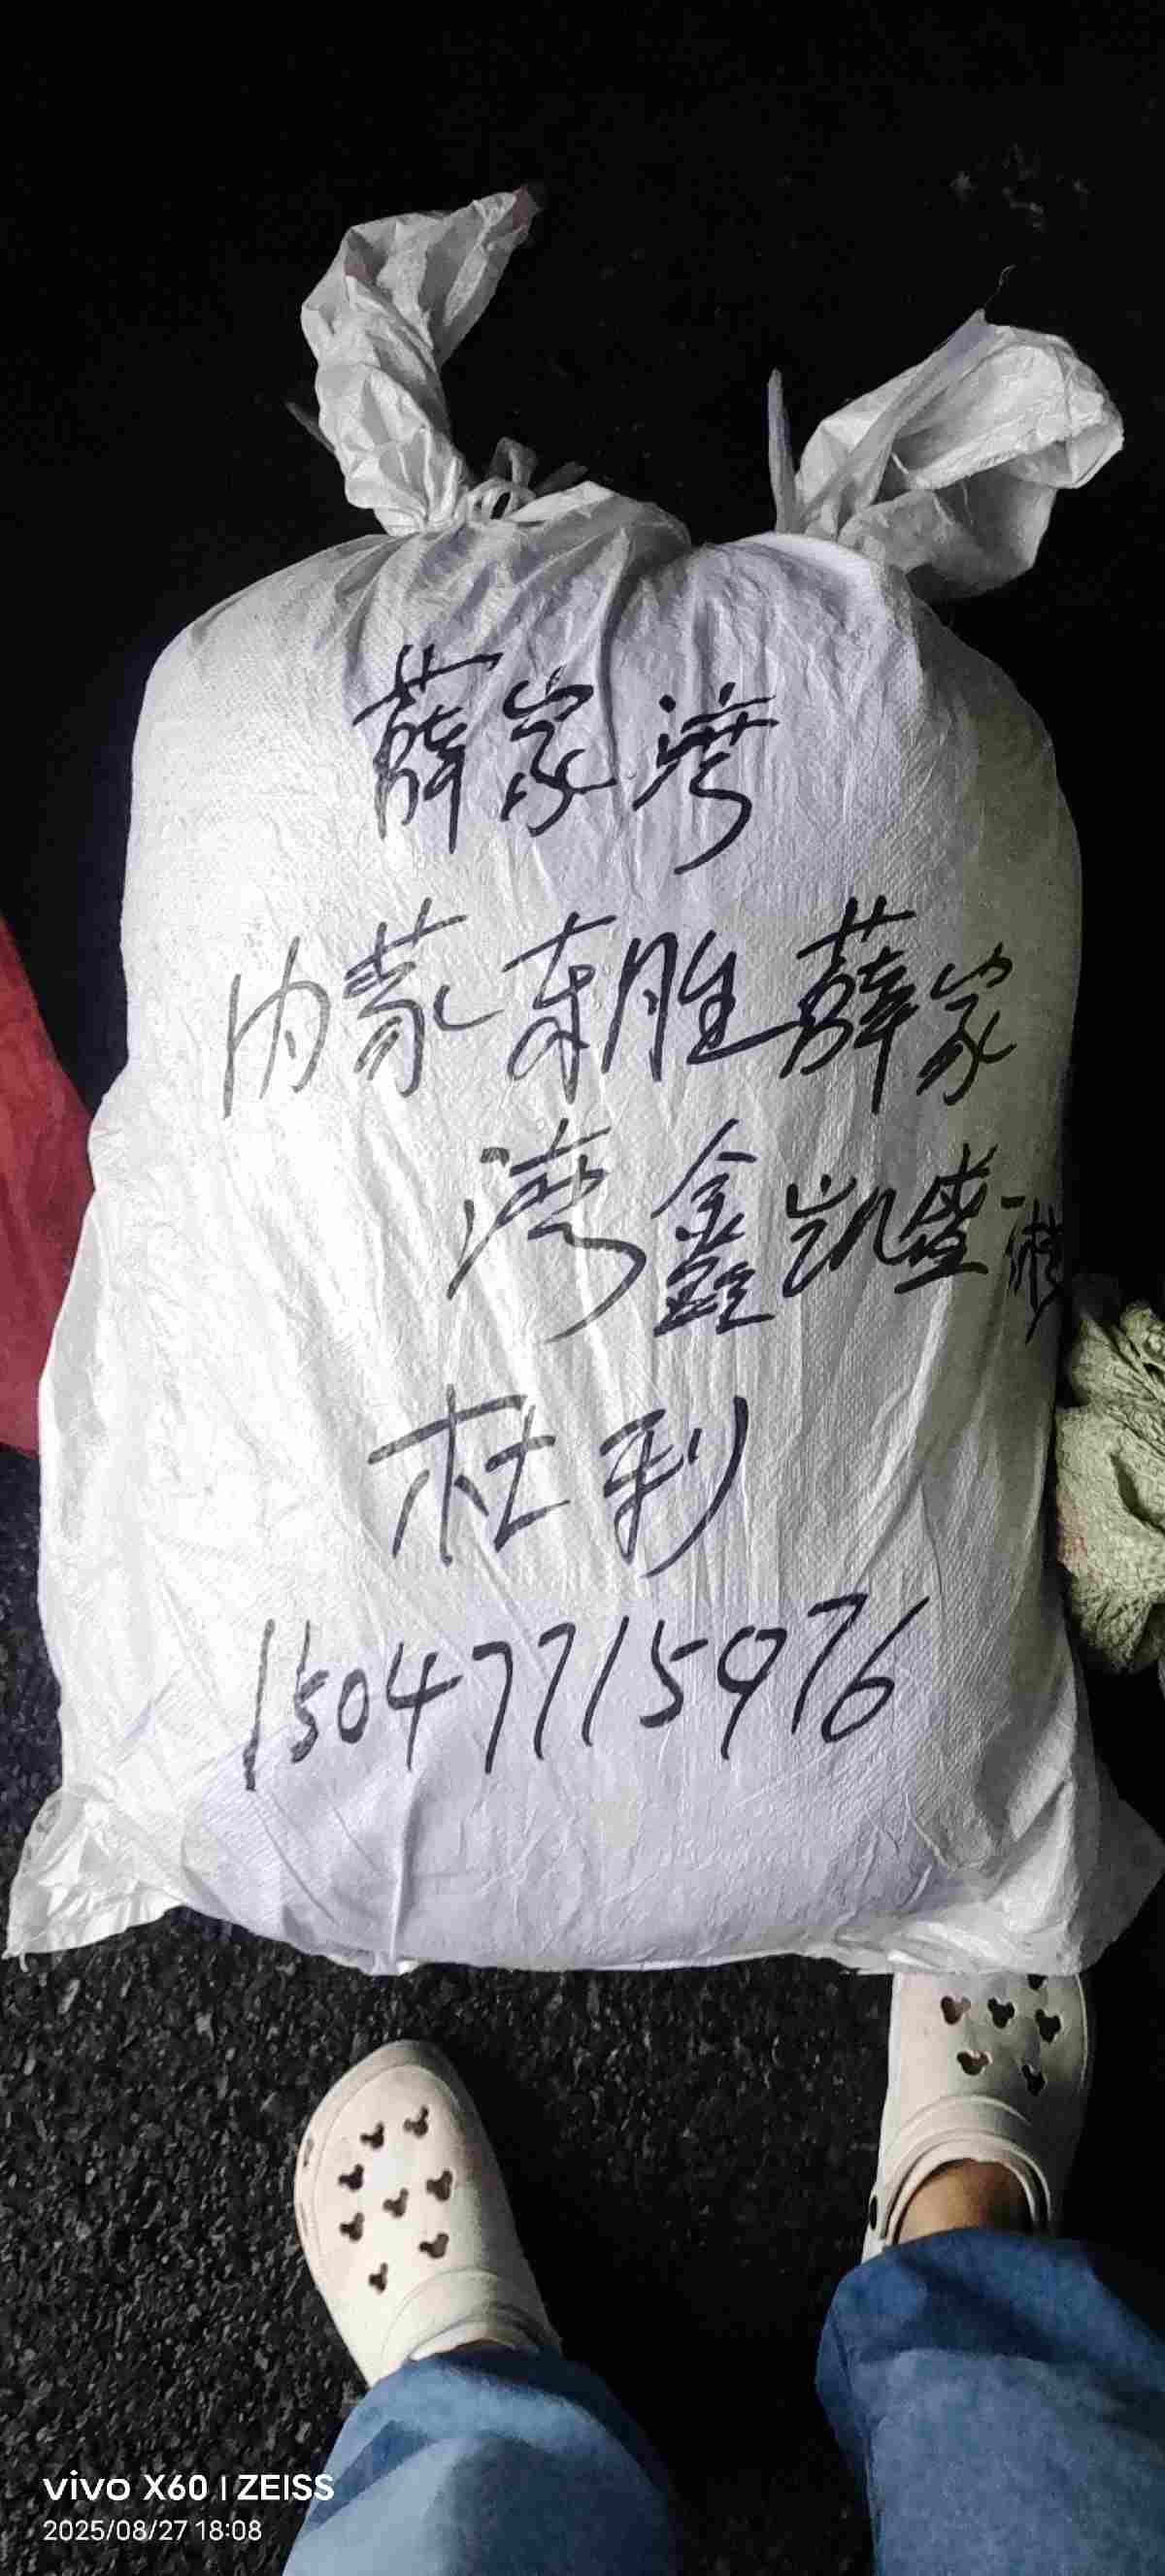 薛家湾
内蒙东胜薛家
湾鑫凯盛
杜利
15047715976
vivo X60 | ZEISS
2025/08/27 18:08